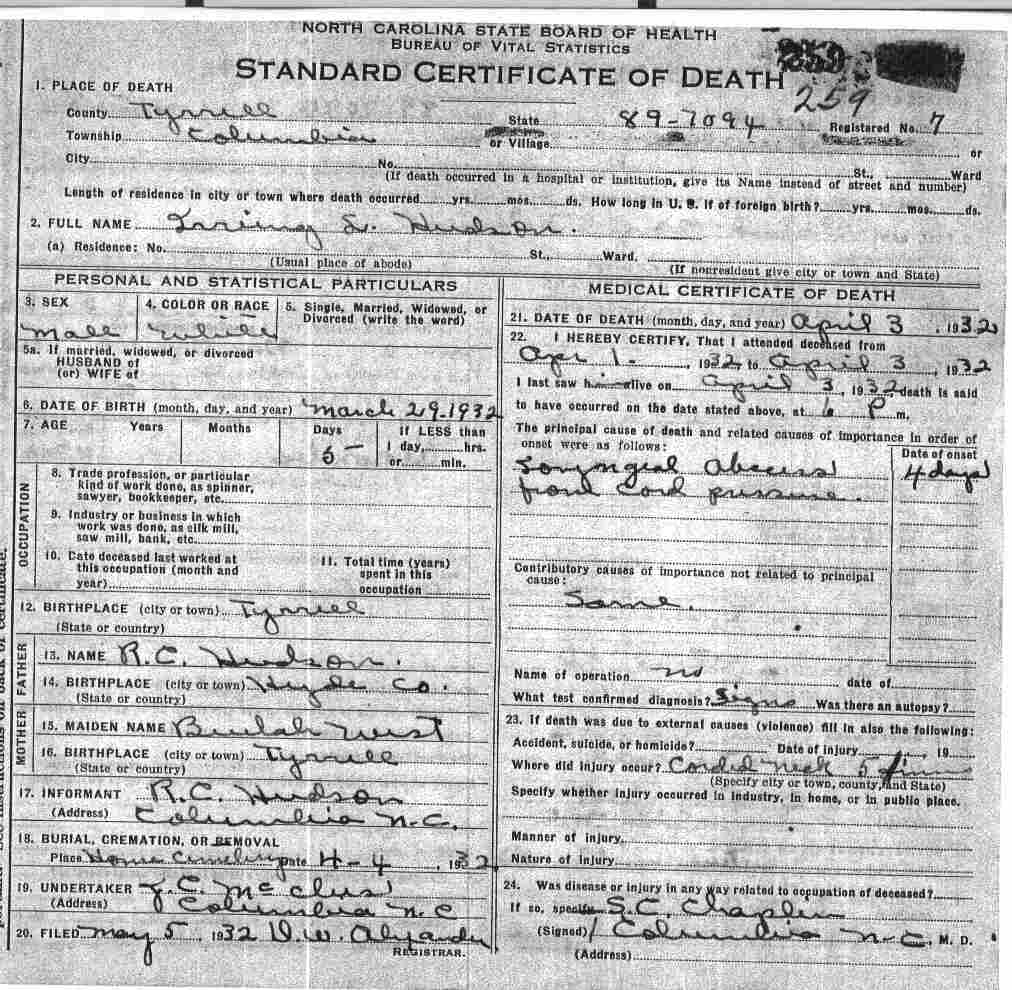 NORTH CAROLINA STATE BOARD OF HEALTH
BUREAU OF VITAL STATISTICS
STANDARD CERTIFICATE OF DEATH
259
1. PLACE OF DEATH
County Tyrrell State 89-7094 Registered No. 7
Township Columbia or Village or
City No. St., Ward
(If death occurred in a hospital or institution, give its Name instead of street and number)
Length of residence in city or town where death occurred yrs. mos. ds. How long in U. S. if of foreign birth? yrs. mos. ds.
2. FULL NAME Irving L. Hudson.
(a) Residence: No. St., Ward.
(Usual place of abode) (If nonresident give city or town and State)
PERSONAL AND STATISTICAL PARTICULARS
3. SEX
Male
4. COLOR OR RACE
White
5. Single, Married, Widowed, or
Divorced (write the word)
5a. If married, widowed, or divorced
HUSBAND of
(or) WIFE of
6. DATE OF BIRTH (month, day, and year) March 29-1932
7. AGE Years Months Days If LESS than
1 day, hrs.
or min.
OCCUPATION
8. Trade profession, or particular
kind of work done, as spinner,
sawyer, bookkeeper, etc.
9. Industry or business in which
work was done, as silk mill,
saw mill, bank, etc.
10. Date deceased last worked at
this occupation (month and
year)
11. Total time (years)
spent in this
occupation
12. BIRTHPLACE (city or town) Tyrrell
(State or country)
FATHER
13. NAME R.C. Hudson.
14. BIRTHPLACE (city or town) Hyde Co.
(State or country)
MOTHER
15. MAIDEN NAME Beulah West
16. BIRTHPLACE (city or town) Tyrrell
(State or country)
17. INFORMANT R.C. Hudson
(Address) Columbia N.C.
18. BURIAL, CREMATION, OR REMOVAL
Place Home Cemetery Date 4-4, 1932
19. UNDERTAKER J.C. 
(Address) Columbia N.C
20. FILED May 5, 1932 D.W.
REGISTRAR.
MEDICAL CERTIFICATE OF DEATH
21. DATE OF DEATH (month, day, and year) April 3, 1932
22. I HEREBY CERTIFY, That I attended deceased from
Apr 1., 1932, to April 3, 1932
I last saw h alive on April 3, 1932, death is said
to have occurred on the date stated above, at 6 P m.
The principal cause of death and related causes of importance in order of
onset were as follows:
Date of onset
abscess 4 days
from cord pressure.
Contributory causes of importance not related to principal
cause:
Same.
Name of operation no date of
What test confirmed diagnosis? Signs Was there an autopsy?
23. If death was due to external causes (violence) fill in also the following:
Accident, suicide, or homicide? Date of injury 19
Where did injury occur? Corded neck 5
(Specify city or town, county, and State)
Specify whether injury occurred in industry, in home, or in public place.
Manner of injury
Nature of injury
24. Was disease or injury in any way related to occupation of deceased?
If so, specify S.C. Chaplin
(Signed) Columbia N.C., M. D.
(Address)